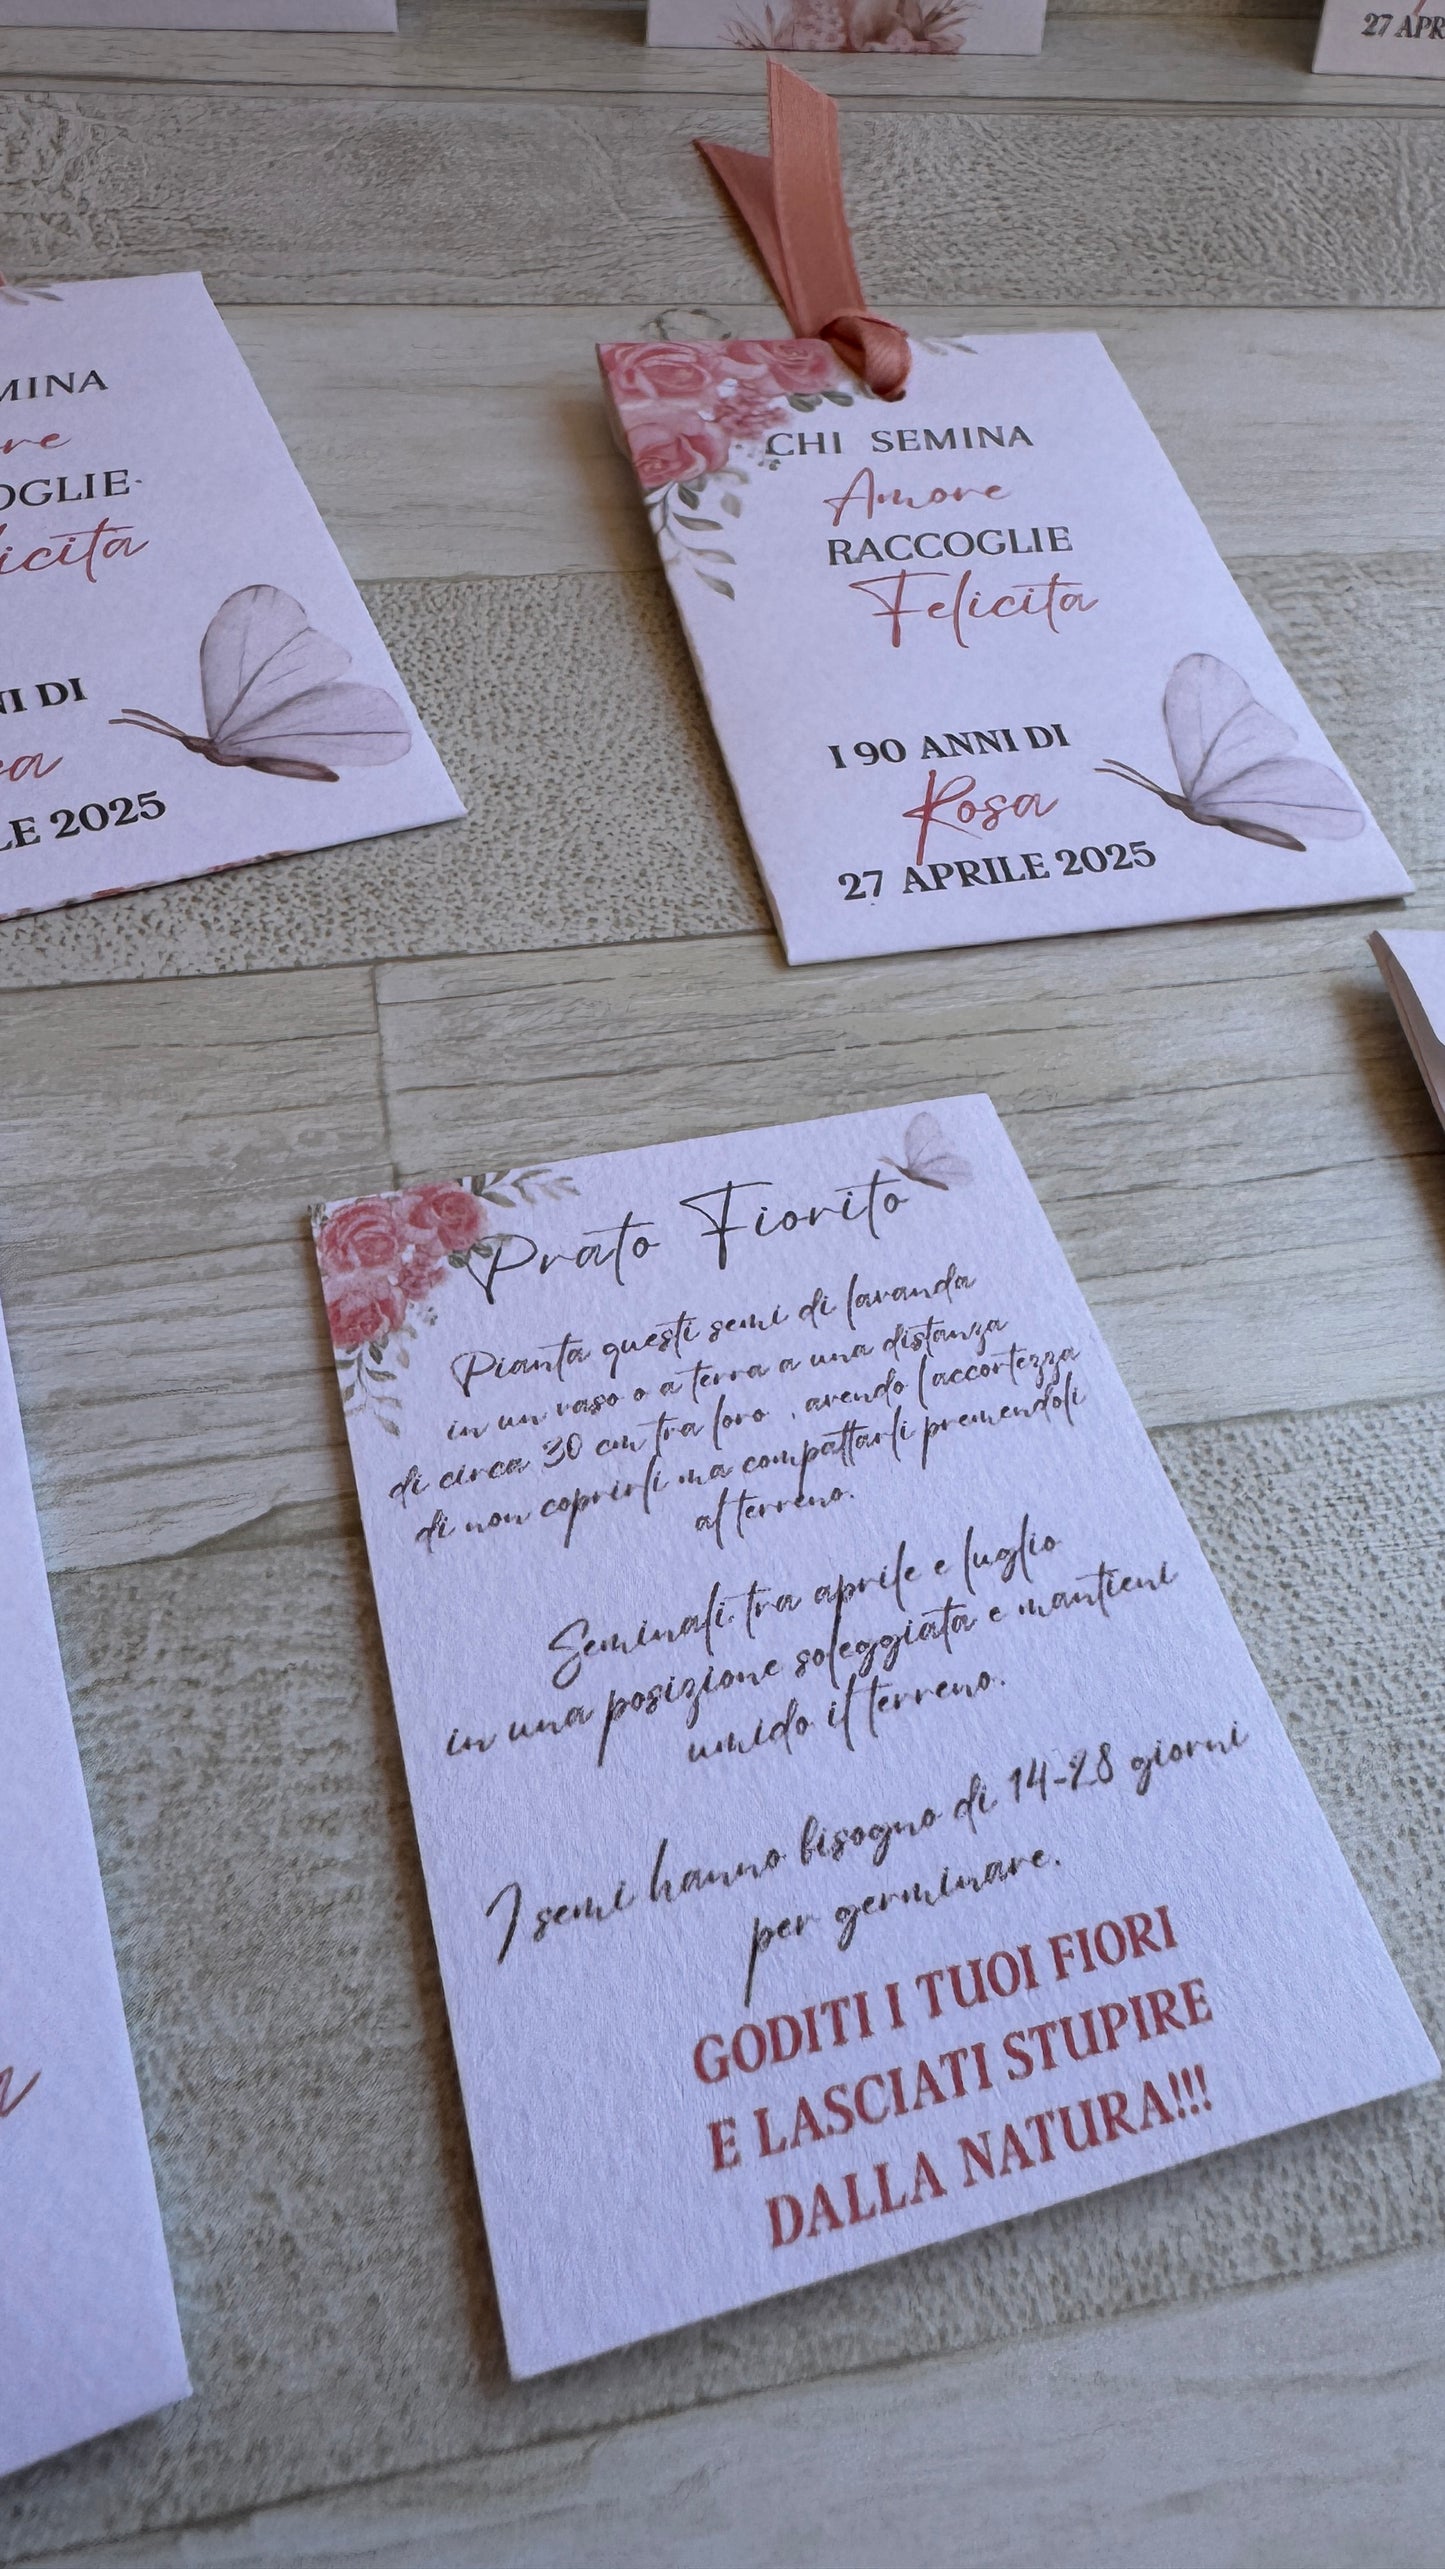 27 APR
MINA
re
OGLIE
licita
NI DI
sa
LE 2025
CHI SEMINA
Amore
RACCOGLIE
Felicita
I 90 ANNI DI
Rosa
27 APRILE 2025
Prato Fiorito
Pianta questi semi di lavanda
in un vaso o a terra a una distanza
di circa 30 cm tra loro , avendo l accortezza
di non coprirli ma compattarli premendoli
al terreno.
Seminali tra aprile e luglio
in una posizione soleggiata e mantieni
umido il terreno.
I semi hanno bisogno di 14-28 giorni
per germinare.
GODITI I TUOI FIORI
E LASCIATI STUPIRE
DALLA NATURA!!!